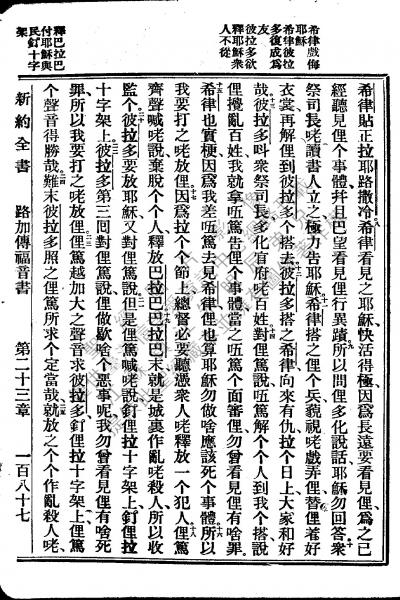 希律戲侮
耶穌
希律彼拉
多復成爲
友
彼拉多欲
釋耶穌衆
人不從
釋巴拉巴
付耶穌與
民釘十字
架
希律貼正拉耶路撒冷希律看見之耶穌快活得極因爲長遠要看見俚爲之已
經聽見俚个事體幷且巴望看見俚行異蹟所以問俚多化說話耶穌勿回答衆
祭司長咾讀書人立之極力告耶穌希律搭之俚个兵藐視咾戲弄俚替俚着好
衣裳再解俚到彼拉多个搭去彼拉多搭之希律向來有仇拉个日上大家和好
哉彼拉多呌衆祭司長多化官府咾百姓對俚篤說唔篤解个个人到我搭說
俚攪亂百姓我就拿唔篤告俚个事體當之唔篤个面審俚勿曾看見俚有啥罪
希律也實梗因爲我差唔篤去見希律俚也算耶穌勿做啥應該死个事體所以
我要打之咾放俚因爲拉个个節上總督必要聽憑衆人咾釋放一个犯人俚篤
齊聲喊咾說棄脫个个人釋放巴拉巴巴拉巴末就是城裏作亂咾殺人所以收
監个彼拉多要放耶穌又對俚篤說但是俚篤喊咾說釘俚拉十字架上釘俚拉
十字架上彼拉多第三回對俚篤說俚做歇啥个惡事呢我勿曾看見俚有啥死
罪所以我要打之咾放俚俚篤越加大之聲音求彼拉多釘俚拉十字架上俚篤
个聲音得勝哉難末彼拉多照之俚篤所求个定當哉就放之个个作亂殺人咾
新約全書 路加傳福音書 第二十三章 一百八十七